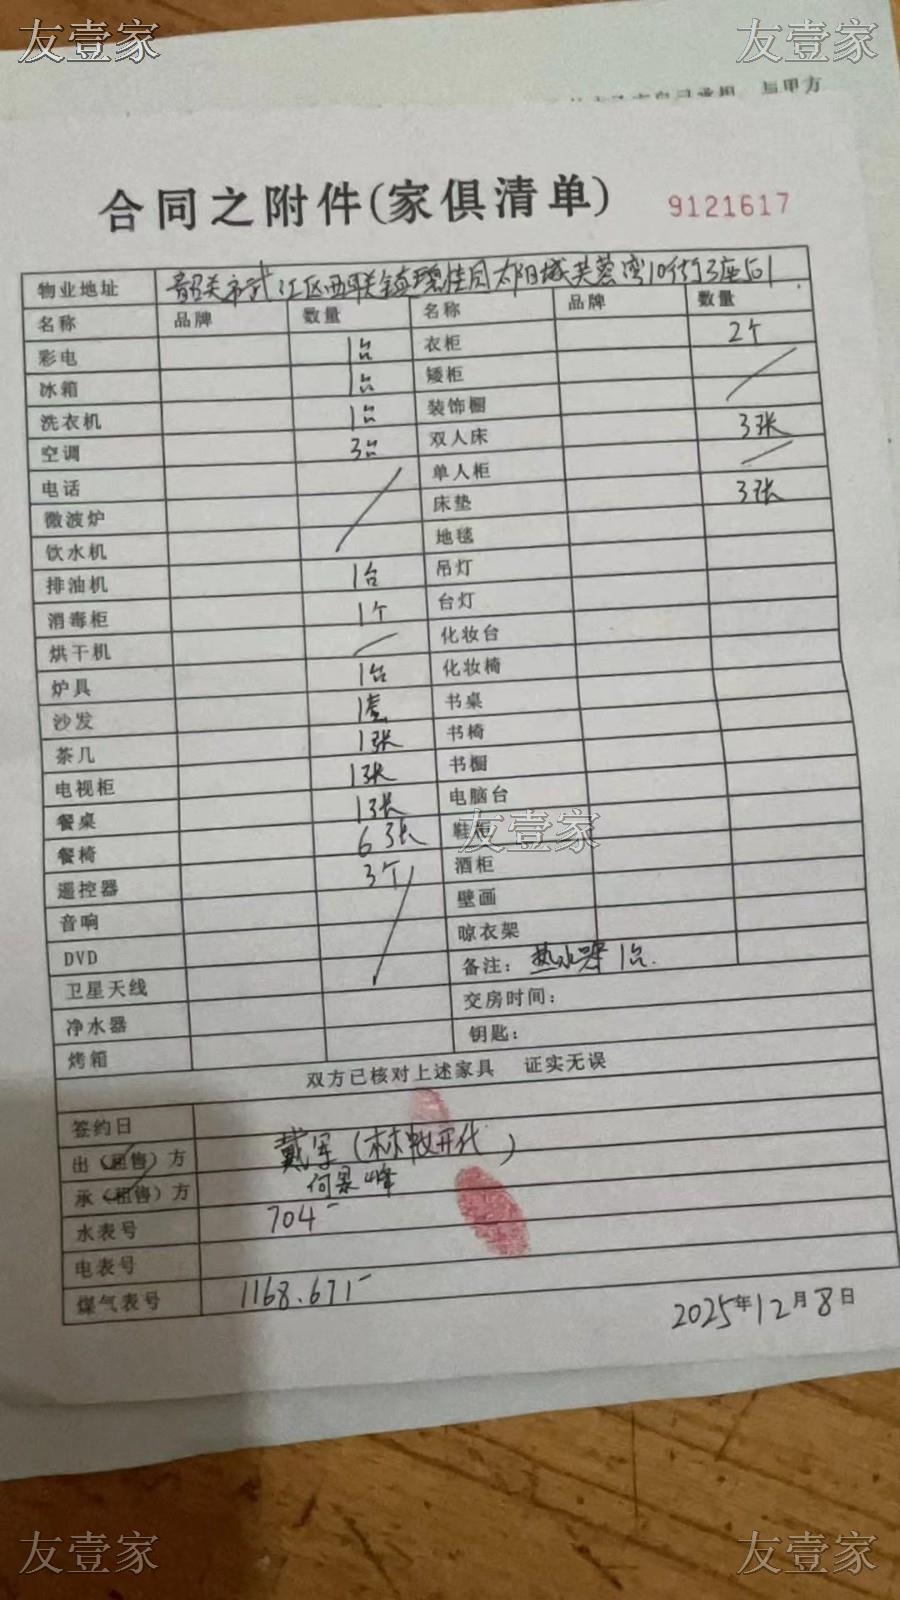 友壹家 友壹家
与甲方
合同之附件(家俱清单) 9121617
物业地址 韶关市武江区西联镇碧桂园太阳城芙蓉湾10街3座501
名称 品牌 数量 名称 品牌 数量
彩电 1台 衣柜 2个
冰箱 1台 矮柜
洗衣机 1台 装饰橱
空调 3台 双人床 3张
电话 单人柜
微波炉 床垫 3张
饮水机 地毯
排油机 1台 吊灯
消毒柜 1个 台灯
烘干机 化妆台
炉具 1台 化妆椅
沙发 1套 书桌
茶几 1张 书椅
电视柜 1张 书橱
餐桌 1张 电脑台
餐椅 6张 鞋柜
友壹家
遥控器 3个 酒柜
音响 壁画
DVD 晾衣架
卫星天线 备注: 热水器1台.
净水器 交房时间:
烤箱 钥匙:
双方已核对上述家具 证实无误
签约日
出(租售)方 戴军(林牧开代)
承(租售)方 何景峰
水表号 704
电表号
煤气表号 1168.671
2025年12月8日
友壹家 友壹家